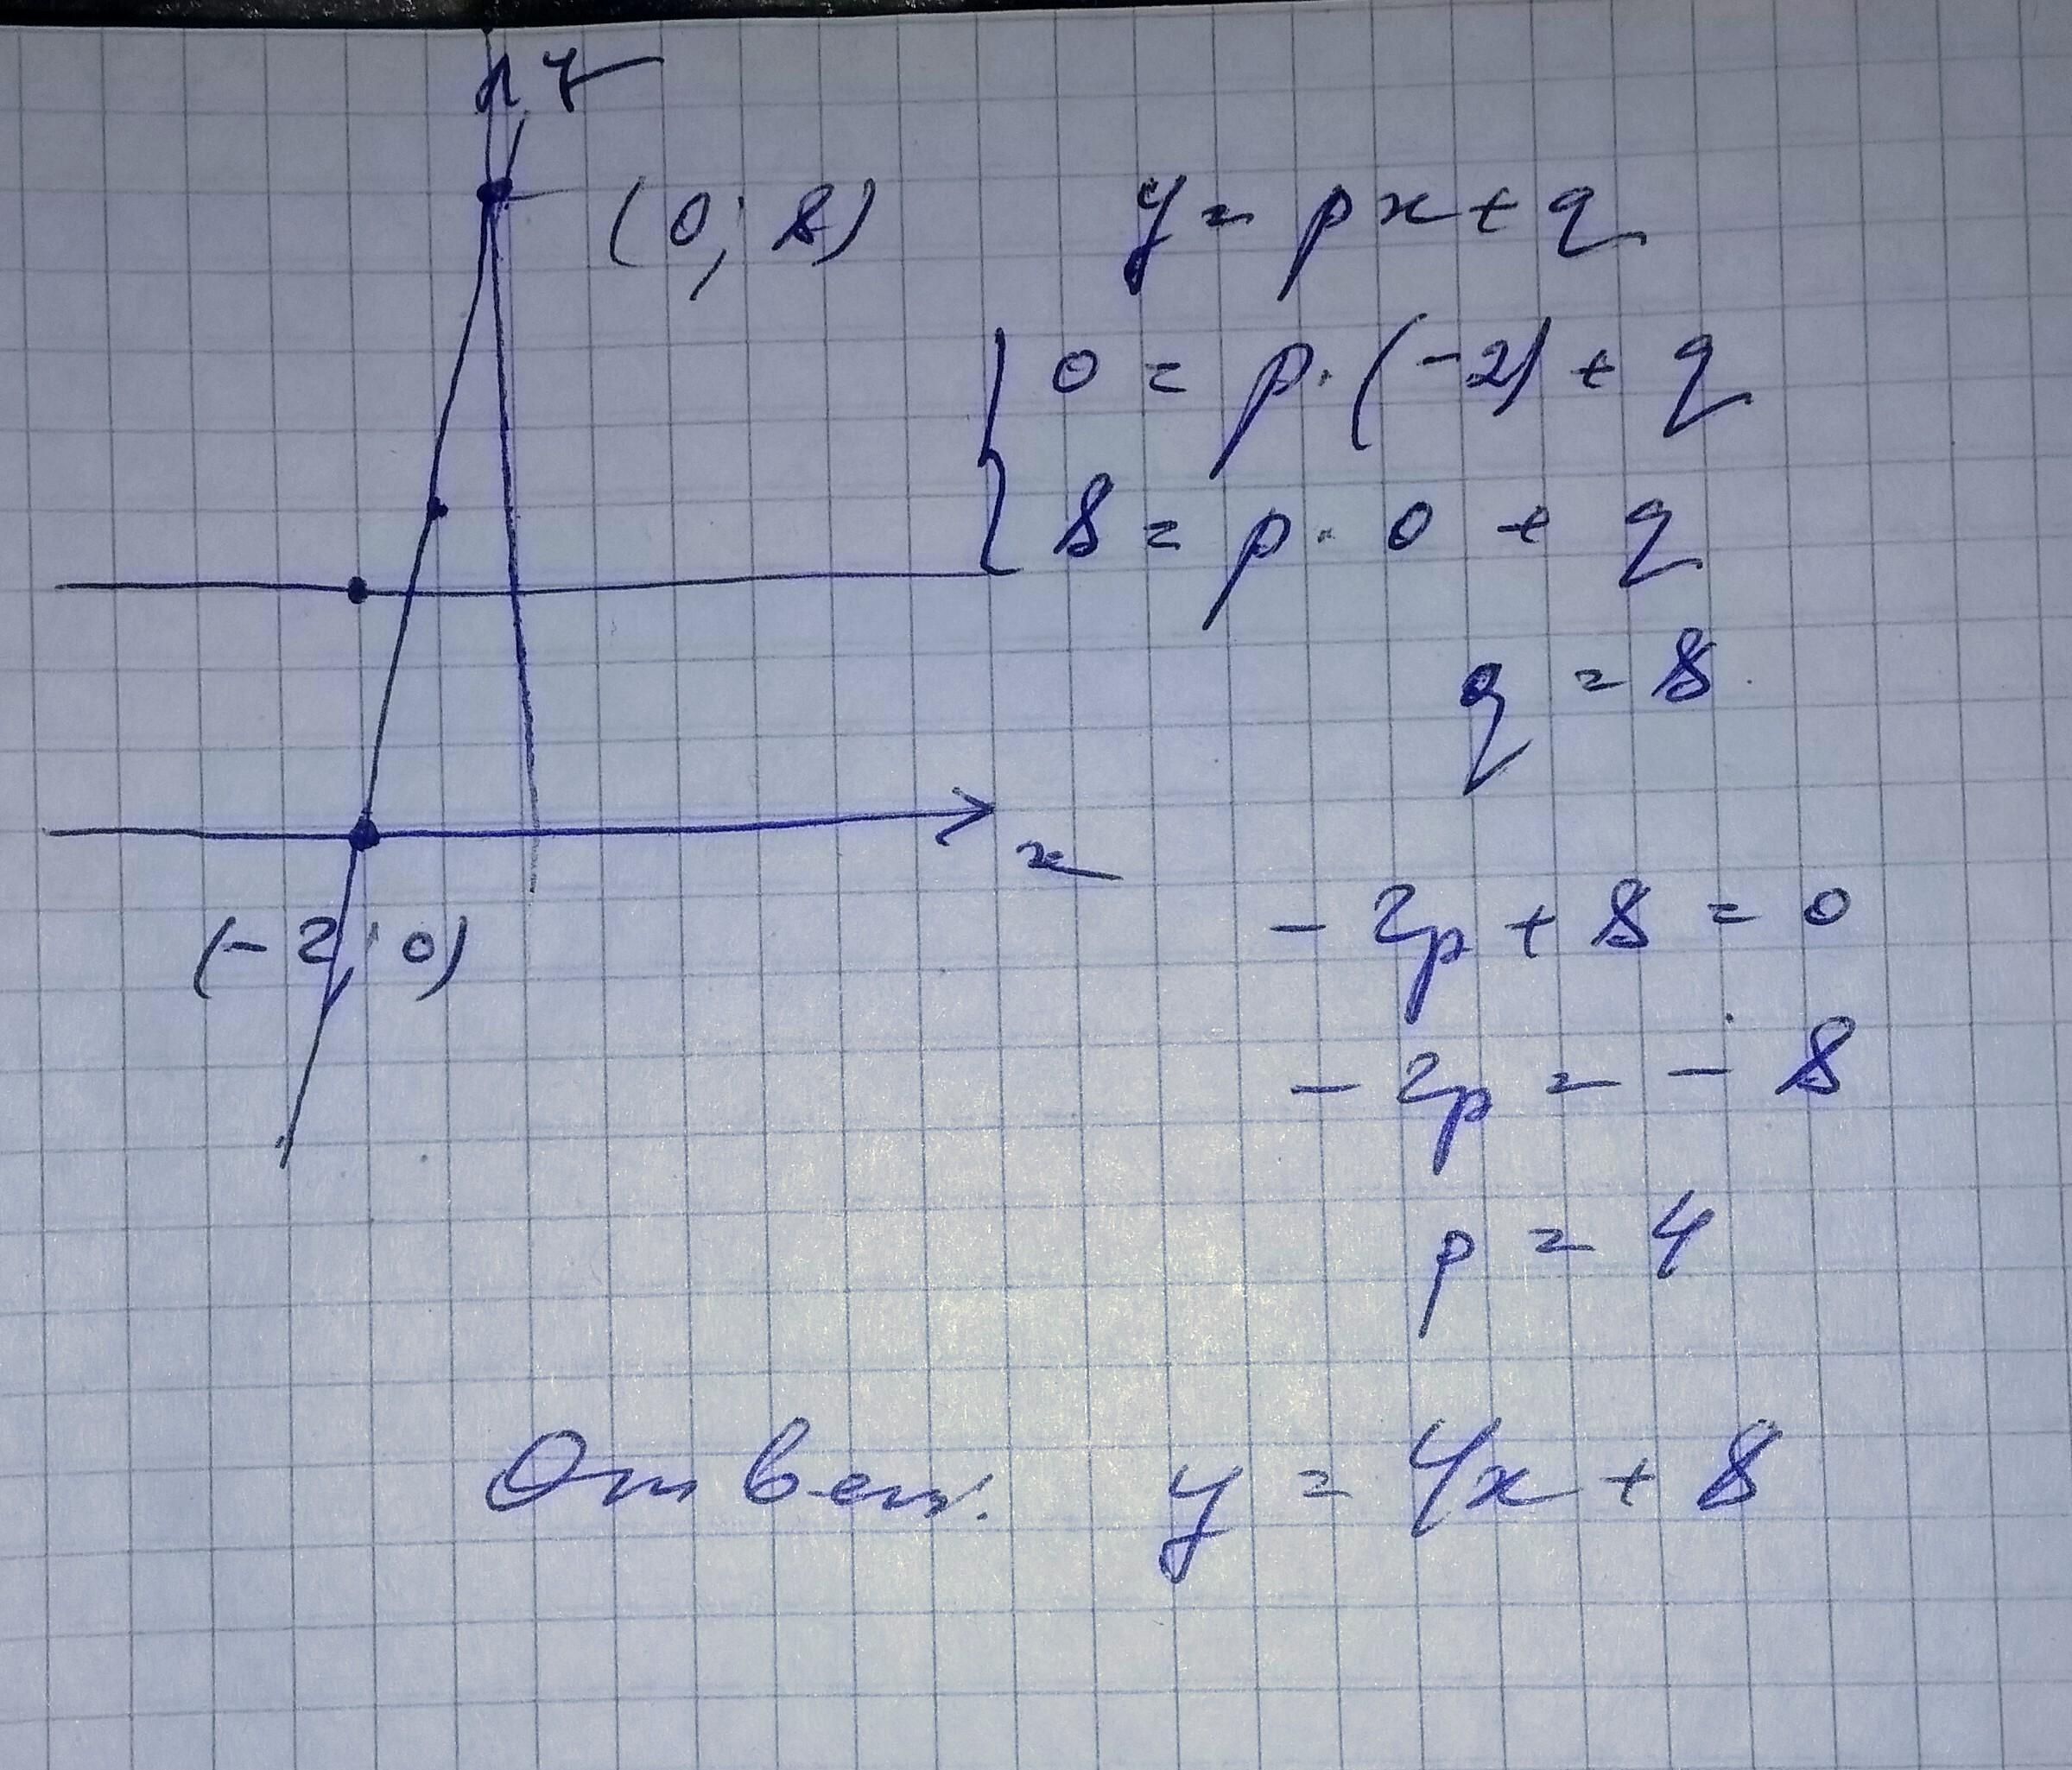 y
(0; 8)
y = px + q
0 = p · (-2) + q
8 = p · 0 + q
q = 8
x
(-2; 0)
- 2p + 8 = 0
- 2p = - 8
p = 4
Ответ: y = 4x + 8